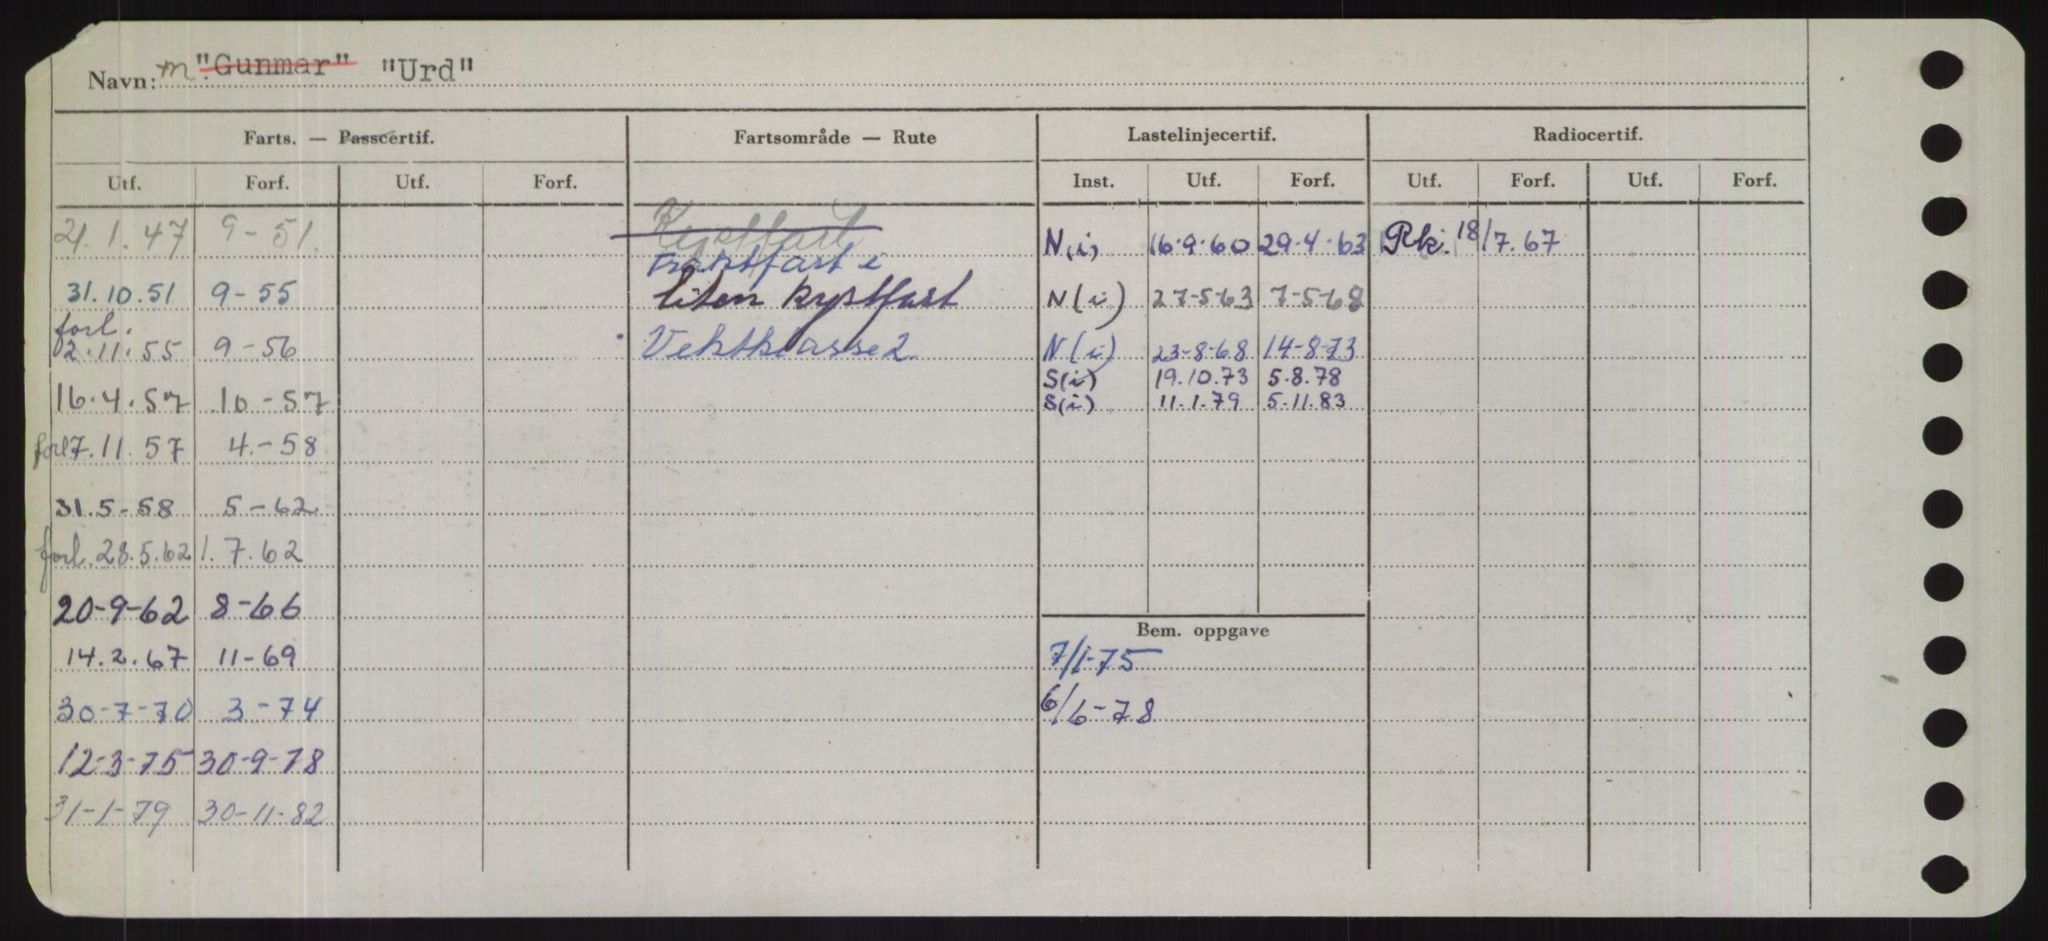 Navn: m "Gunmar" "Urd"
Farts. — Passcertif. Fartsområde — Rute Lastelinjecertif. Radiocertif.
Utf. Forf. Utf. Forf. Inst. Utf. Forf. Utf. Forf. Utf. Forf.
21.1.47 9-51. Kystfart N(i) 16.9.60 29.4.63 Rk. 18/7.67
Fraktfart i
31.10.51 9-55 liten kystfart N(i) 27-5-63 7-5-68
forl.
2.11.55 9-56 Vektklasse 2 N(i) 23-8-68 14-8-73
S(i) 19.10.73 5.8.78
16.4.57 10-57 S(i) 11.1.79 5.11.83
forl 7.11.57 4.-58
31.5-58 5-62
forl. 28.5.62 1.7.62
20-9-62 8-66
Bem. oppgave
14.2.67 11-69 7/1-75
30-7-70 3-74 6/6-78
12-3-75 30-9-78
31-1-79 30-11-82